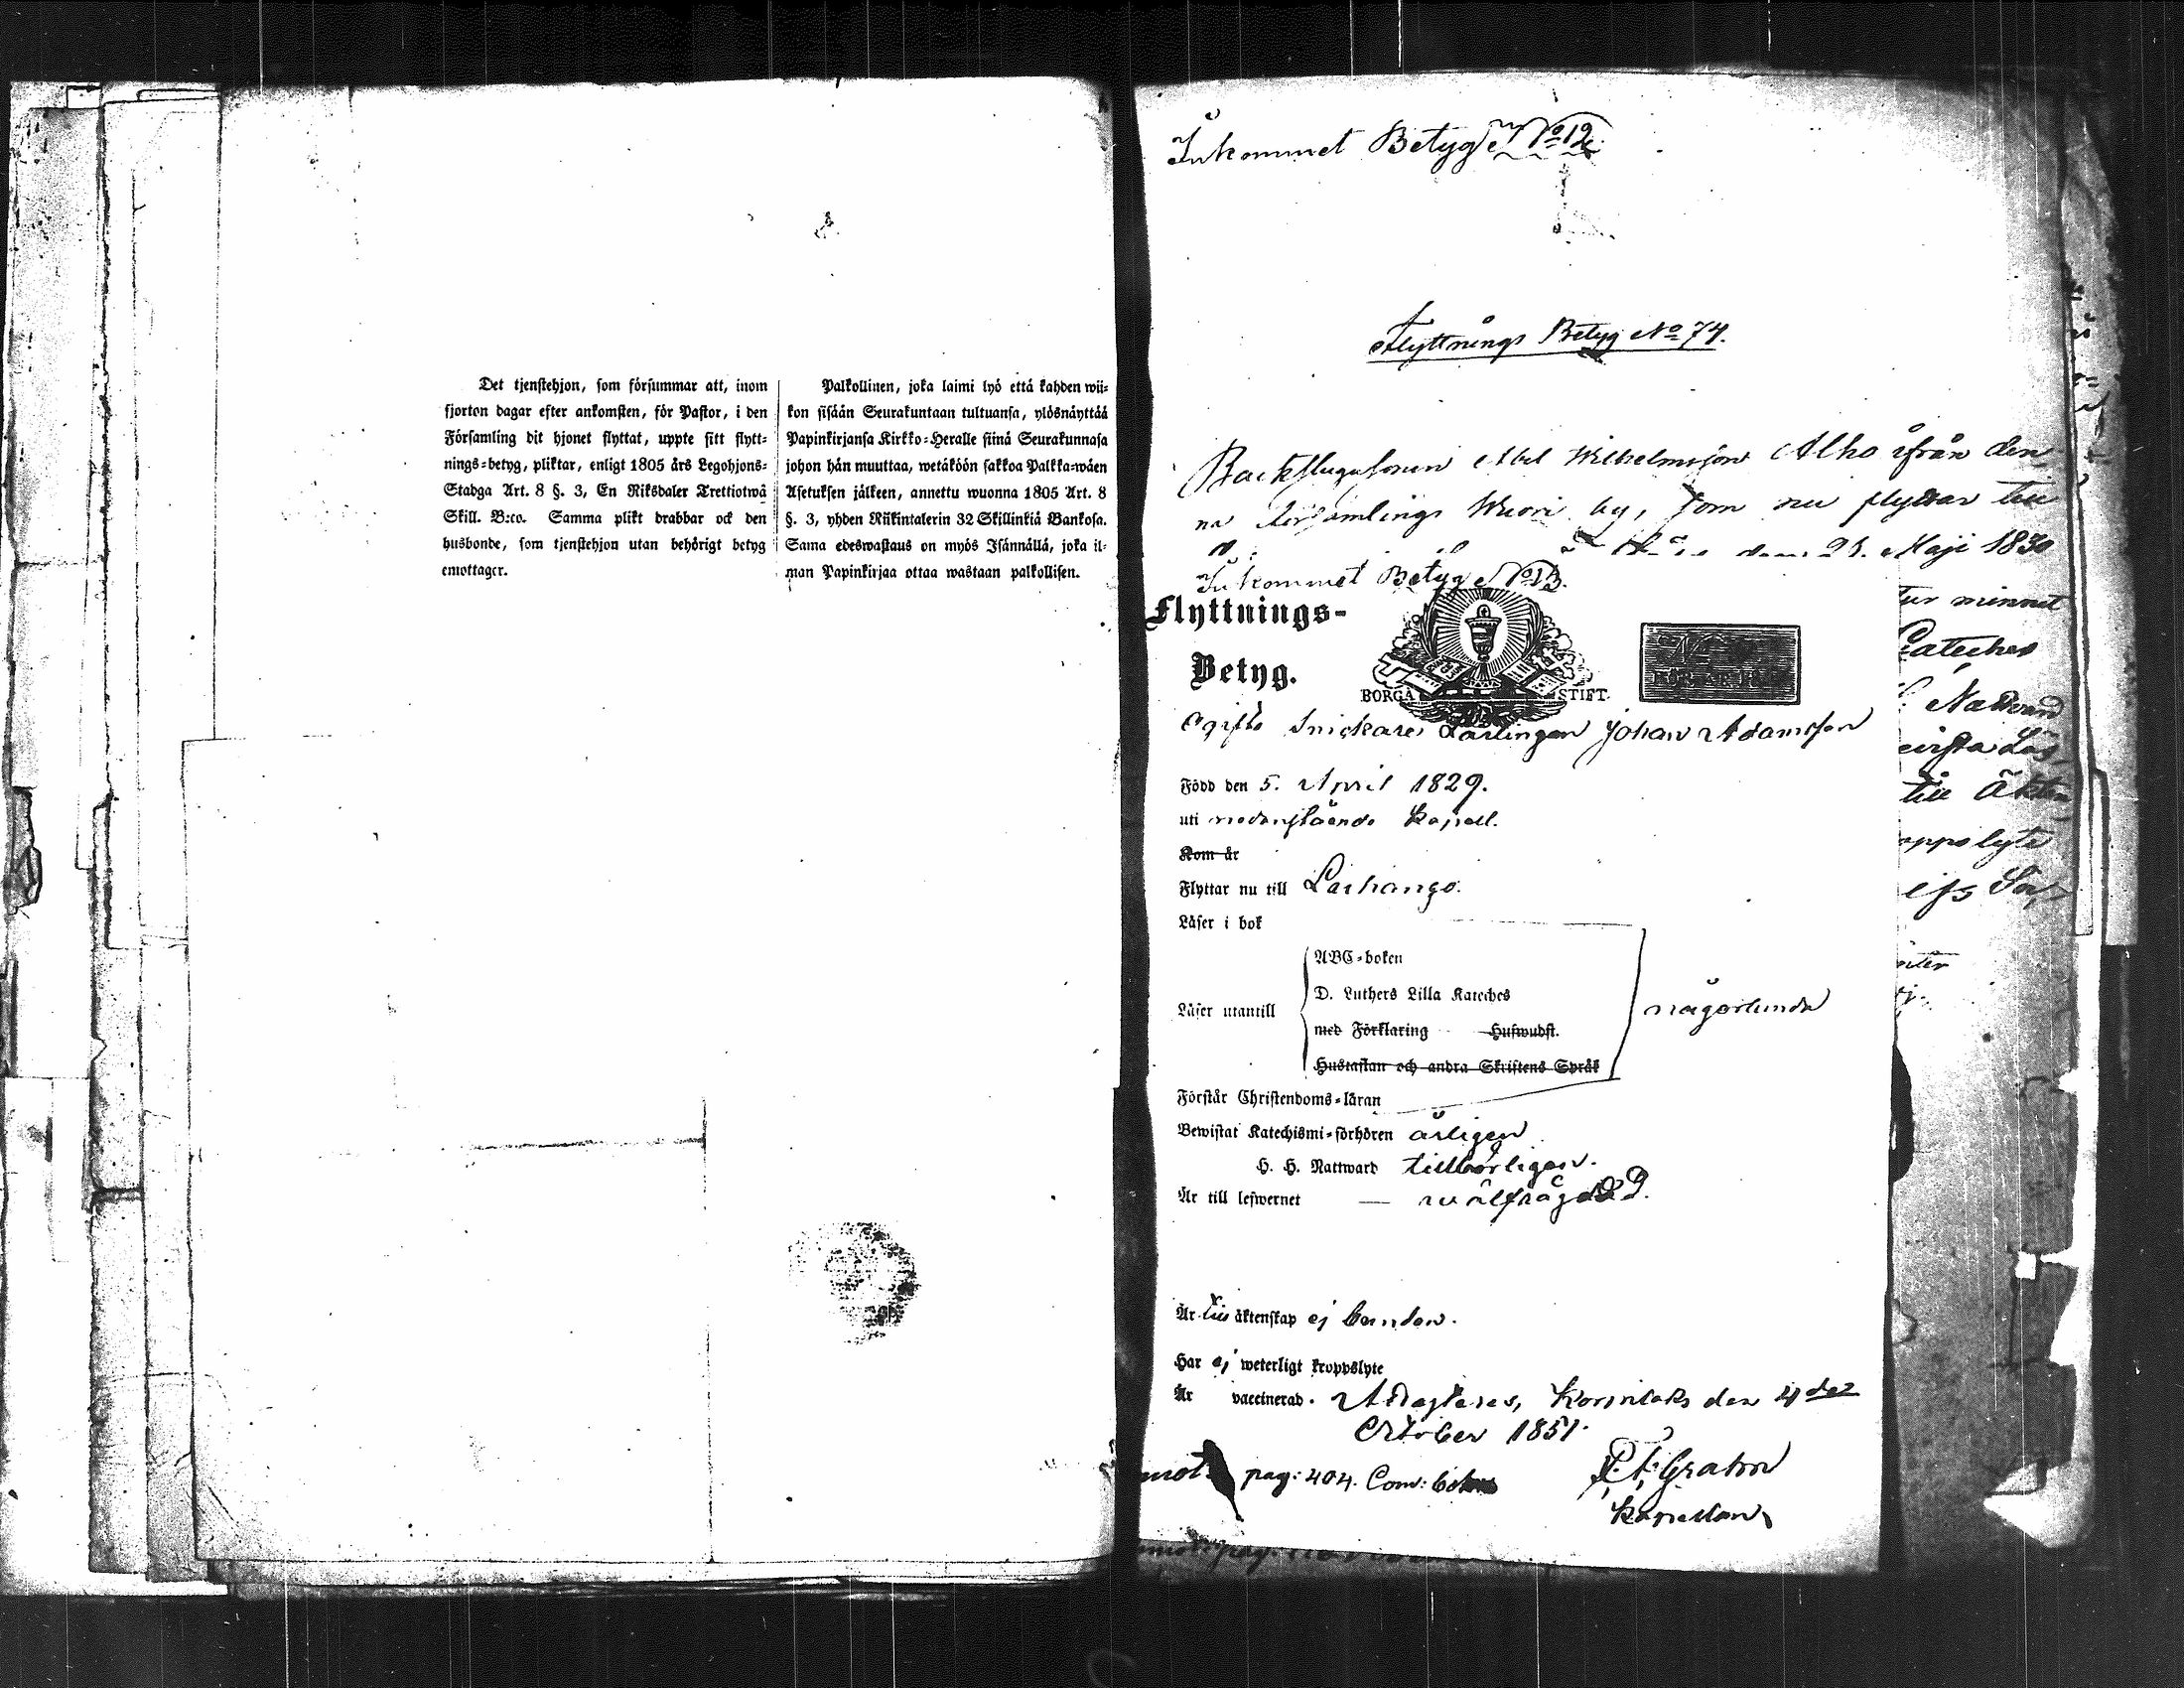 Det tjenstehjon, som försummar att, inom
fjorton dagar efter ankomsten, för Pastor, i den
Församling dit hjonet flyttat, uppte sitt flytt-
nings-betyg, pliktar, enligt 1805 års Legohjons-
Stadga Art. 8 §. 3, En Riksdaler Trettiotwå
Skill. B:co. Samma plikt drabbar ock den
husbonde, som tjenstehjon utan behörigt betyg
emottager.
Palkollinen, joka laimi lyö että kahden wii-
kon sisään Seurakuntaan tultuansa, ylösnäyttää
Papinkirjansa Kirkko-Heralle siinä Seurakunnasa
johon hän muuttaa, wetäköön sakkoa Palkka-wäen
Asetuksen jälkeen, annettu wuonna 1805 Art. 8
§. 3, yhden Riikintalerin 32 Skillinkiä Bankosa.
Sama edeswastaus on myös Isännällä, joka il-
man Papinkirjaa ottaa wastaan palkollisen.
Inkommet Betyg No 12.
Flyttnings Betyg No 74.
Backstugusonen Abel Wilhelmsson Alho ifrån den
na Församlings Wuori by, som nu flyttar till
den 21. Maji 1830
Inkommet Betyg No 13.
tur minnet
Cateches
Nattvard
till Äkten
kroppslyte
Flyttnings-
Betyg.
BORGÅ STIFT.
Ogifte Snickare Lärlingen Johan Adamsson
Född den 5. April 1829.
uti nedanstående Kapell.
Kom år
Flyttar nu till Laihango.
Läser i bok
ABC-boken
D. Luthers Lilla Kateches
Läser utantill
med Förklaring Hufwudst.
någorlunda
Hustaflan och andra Skriftens Språk
Förstår Christendoms-läran
Bewistat Katechismi-förhören årligen
H. H. Nattward tillbörligen.
Är till lefwernet — wälfrägdad.
Är till äktenskap ej bunden.
Har ej weterligt kroppslyte
Är vaccinerad. Attesteras, Korsnlaks den 4de
October 1851.
pag: 404. Com:
Kapellan